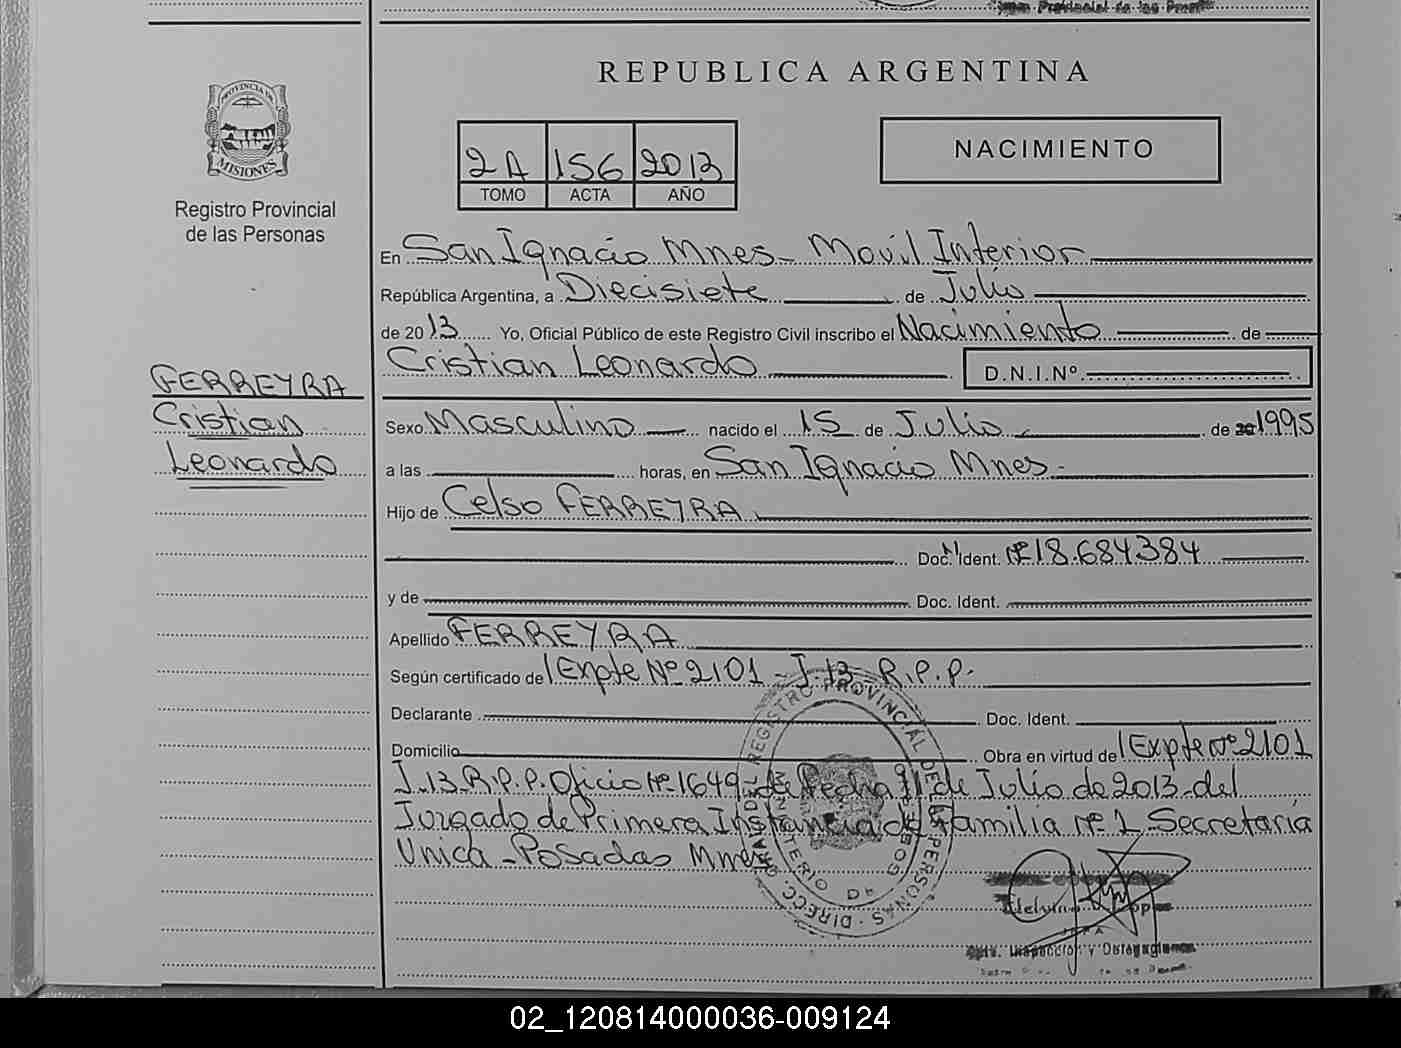 REPUBLICA ARGENTINA
PROVINCIA DE
MISIONES
Registro Provincial
de las Personas
2A 156 2013
TOMO ACTA AÑO
NACIMIENTO
En San Ignacio Mnes - Movil Interior
República Argentina, a Diecisiete de Julio
de 2013 Yo, Oficial Público de este Registro Civil inscribo el Nacimiento de
Cristian Leonardo D.N.I.Nº
FERREYRA
Cristian
Leonardo
Sexo Masculino nacido el 15 de Julio de 1995
a las horas, en San Ignacio Mnes -
Hijo de Celso FERREYRA
Doc. Ident. Nº 18.684384
y de Doc. Ident.
Apellido FERREYRA
Según certificado de Expte Nº 2101 - J-13 R.P.P.
Declarante Doc. Ident.
Domicilio Obra en virtud de Expte Nº 2101
J-13-R.P.P. Oficio Nº 1649 de Fecha 11 de Julio de 2013 del
Juzgado de Primera Instancia de Familia Nº 1 - Secretaría
Unica - Posadas Mnes
DIRECC. GRAL. DEL REGISTRO PROVINCIAL DE LAS PERSONAS
MINISTERIO DE GOBIERNO
JEFA
Dpto. Inspección y Delegaciones
02_120814000036-009124